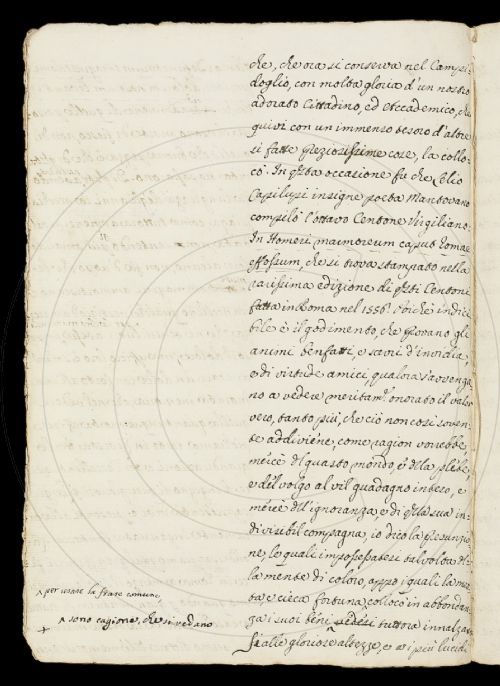 che, che ora si conserva nel Campi-
doglio, con molta gloria d'un nostro
adorato Cittadino, ed Accademico, che
quivi con un immenso tesoro d'altre
sì fatte preziosissime cose, la collo-
cò. In q̃sta occasione fu che Lelio
Capilupi insigne poeta Mantovano
compilò l'ottavo Centone Virgiliano:
In Homeri marmoreum caput Romae
effossum, che si trova stampato nella
rarissima edizione di q̃sti Centoni
fatta in Roma nel 1556. Poiché indici-
bile è il godimento, che provano gli
animi benfatti, e scevri d'invidia,
e di virtude amici qualora s'avvenga-
no a vedere meritam.e onorato il valor
vero, tanto più, che ciò non così soven-
te addiviene, come ragion vorrebbe,
mercè del guasto mondo, e della plebe,
e del volgo al vil guadagno inteso, e
mercè dell'ignoranza, e di q̃lla sua in-
divisibil compagna, io dico la presunzio-
ne, le quali impossessatesi talvolta del-
la mente di coloro, appo i quali la
e cieca fortuna collocò in abbondan-
za i suoi beni, tuttora innalzar
alle gloriose altezze, e ai più lucidi
^ per usare la frase comune,
^ sono cagione, che si vedano
+